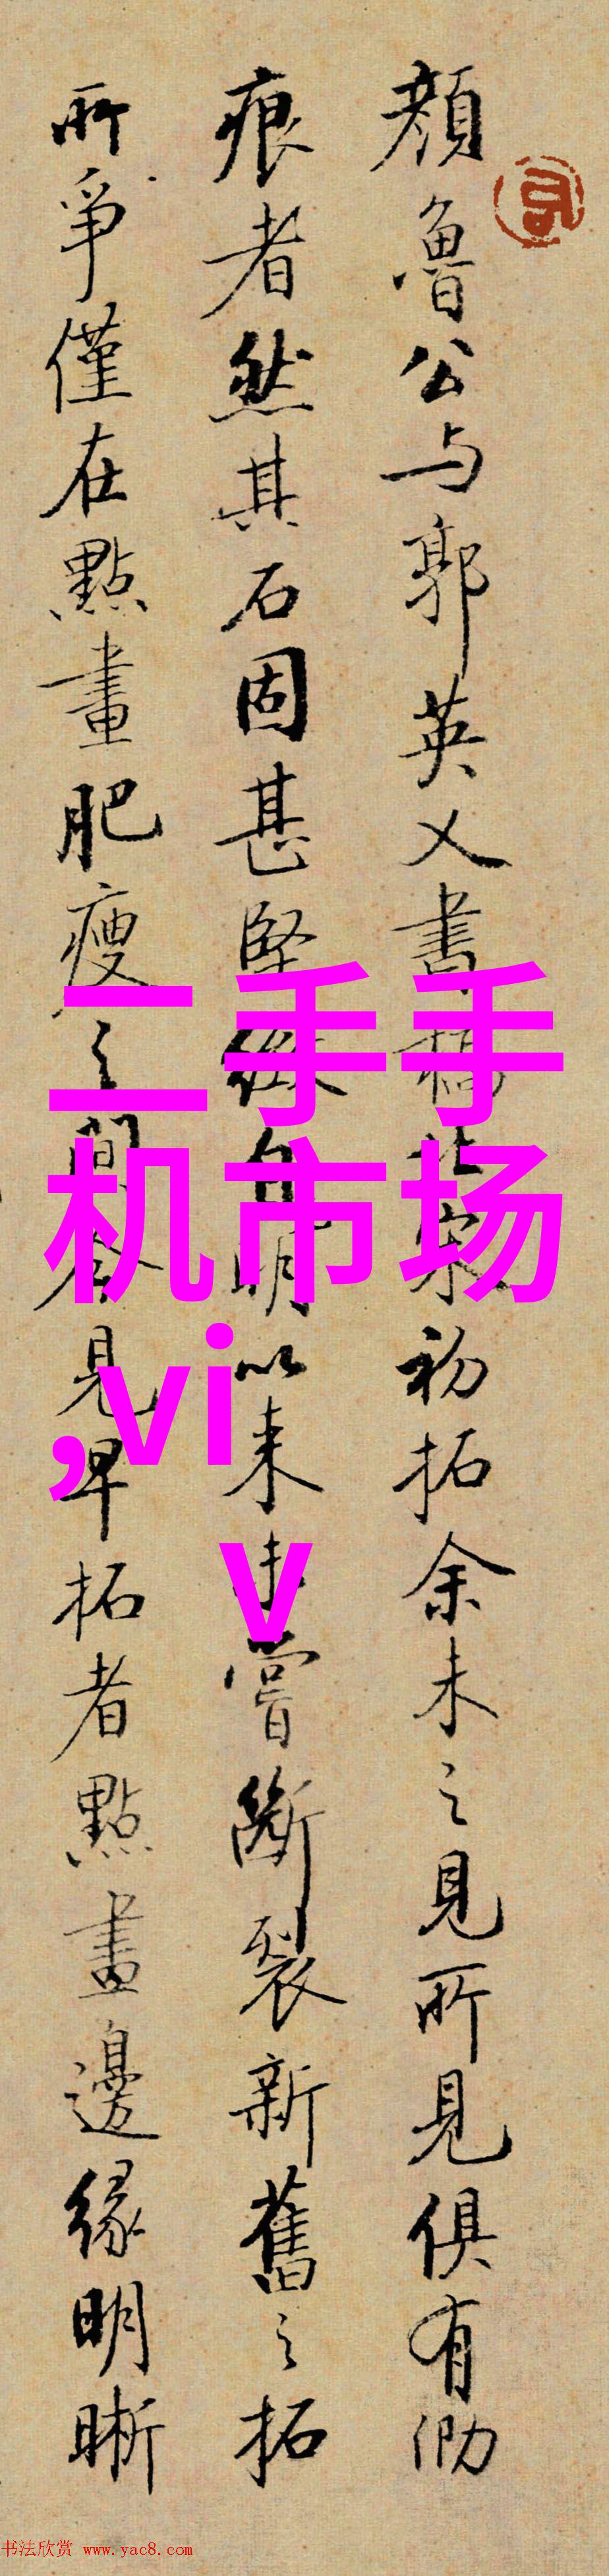 顔魯公与郭英乂書稿北宋初拓余未之見所見俱有泐
痕者然其石固甚堅縱自明以来未嘗斷裂新舊之拓
所爭僅在點畫肥瘦之間今見早拓者點畫邊緣明晰
二手手
机市场
,vi
v
书法欣赏 www.yac8.com